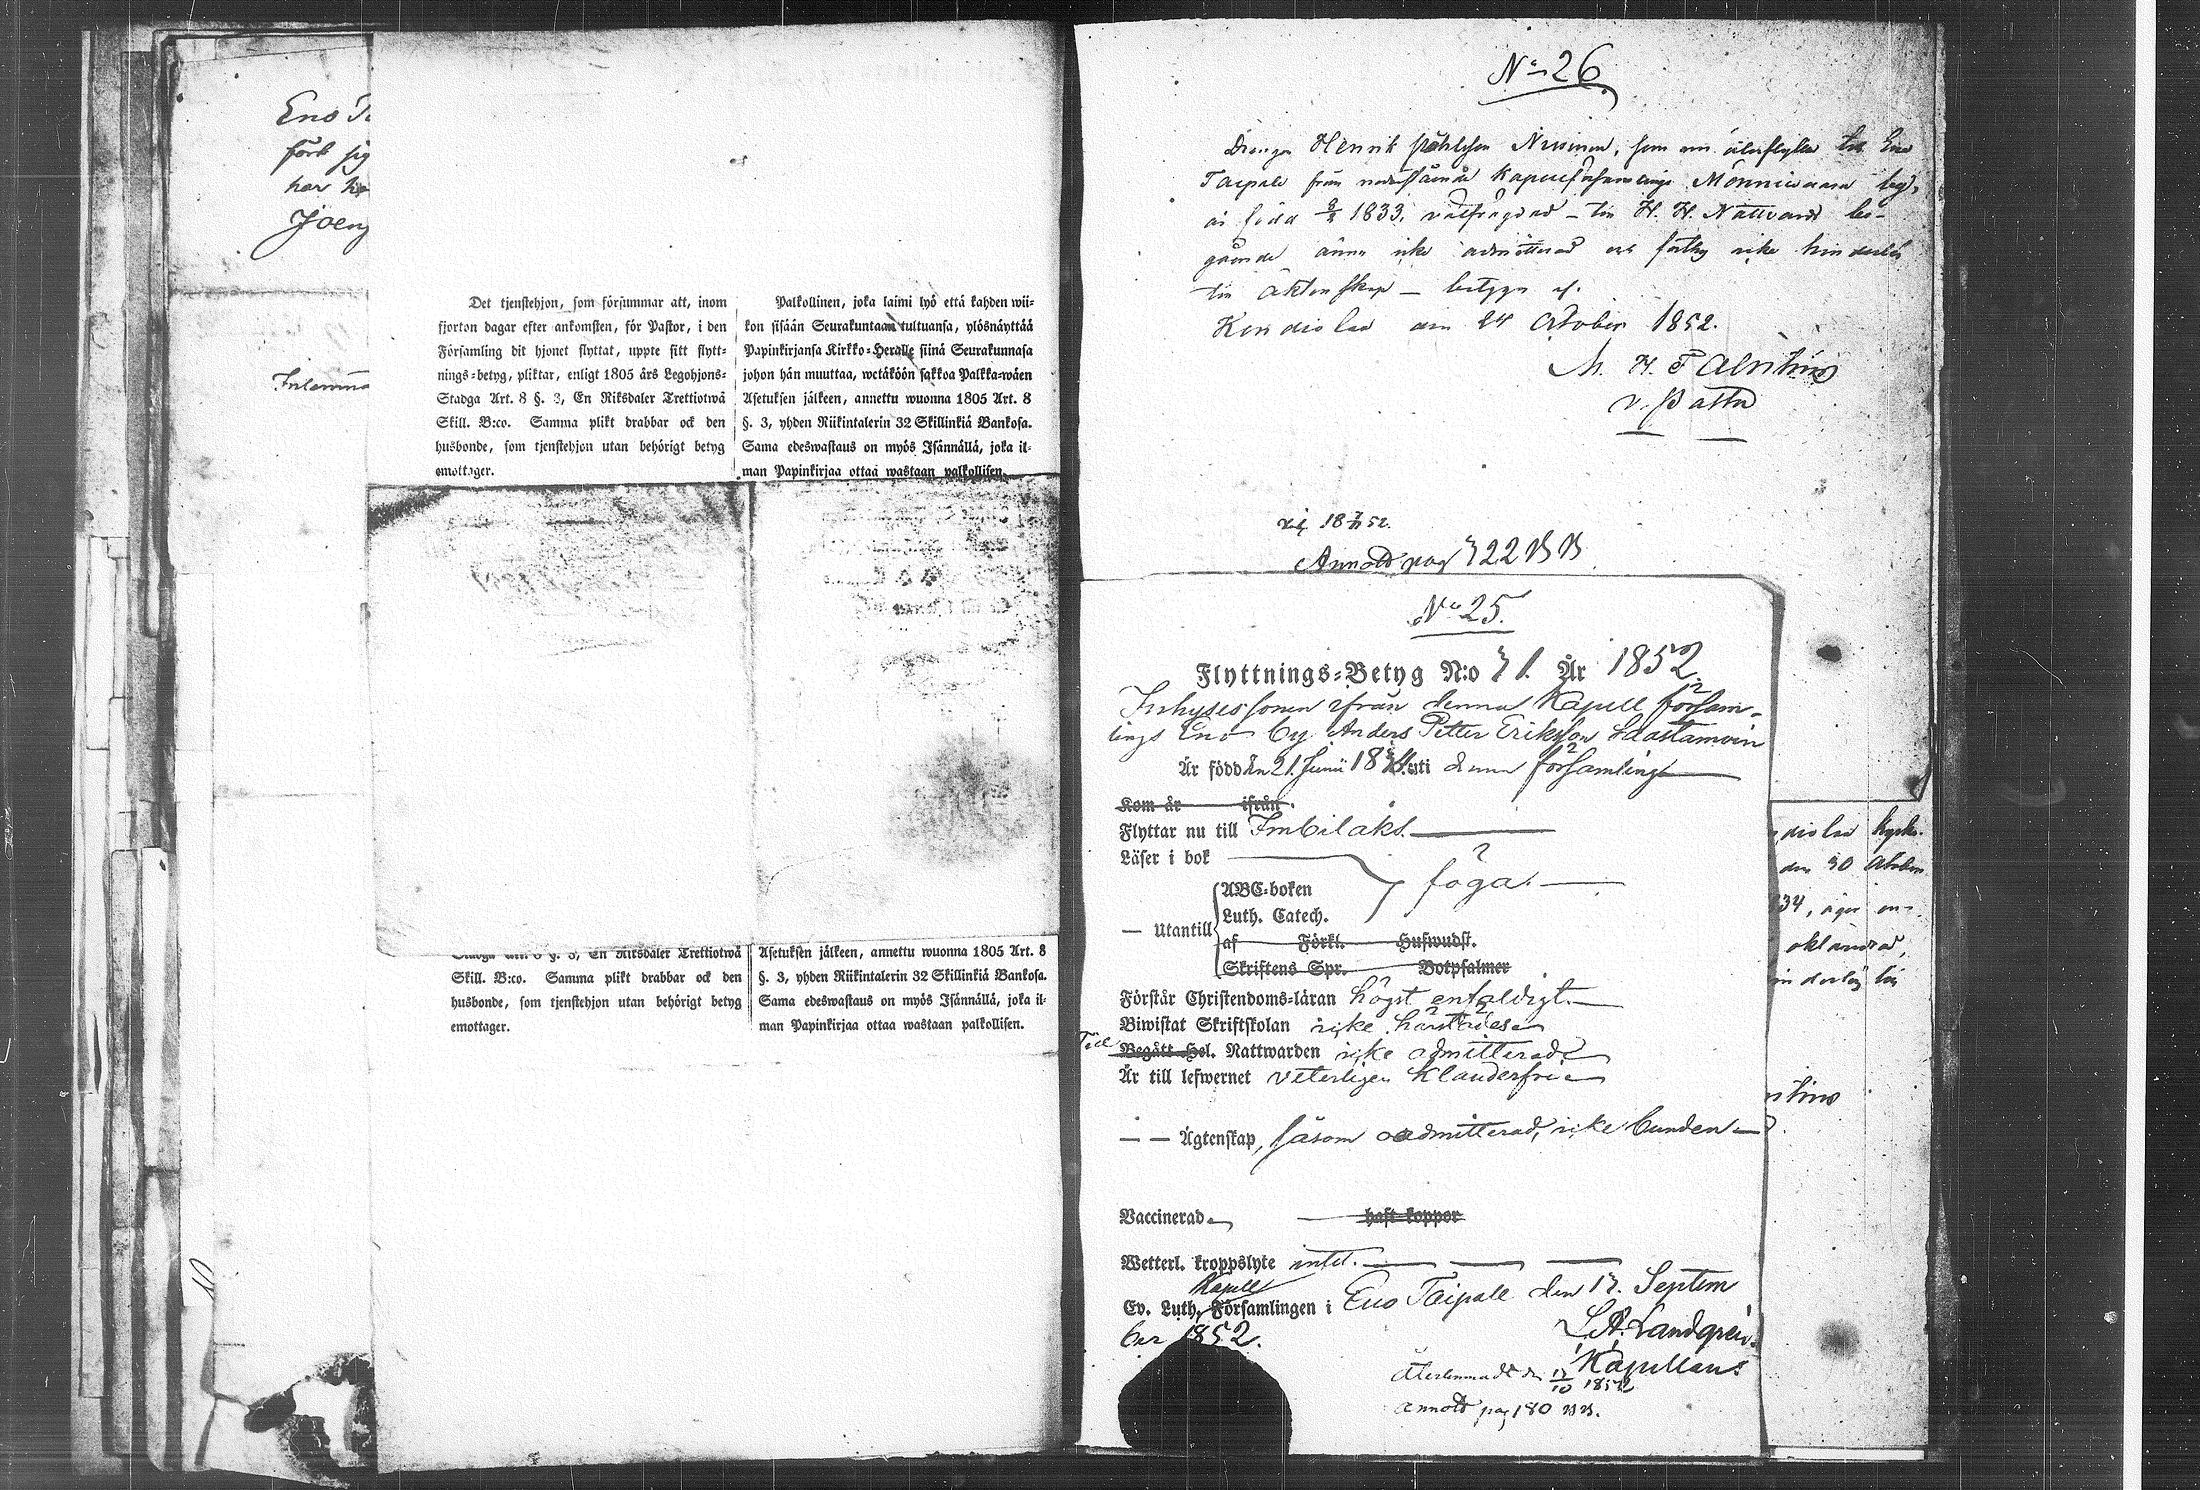 Eno
fört sig
har
Joen
Inlemna
Det tjenstehjon, som försummar att, inom
fjorton dagar efter ankomsten, för Pastor, i den
Församling dit hjonet flyttat, uppte sitt flytt-
nings-betyg, pliktar, enligt 1805 års Legohjons-
Stadga Art. 8 §. 3, En Riksdaler Trettiotwå
Skill. B:co. Samma plikt drabbar ock den
husbonde, som tjenstehjon utan behörigt betyg
emottager.
Palkollinen, joka laimi lyö että kahden wii-
kon sisään Seurakuntaan tultuansa, ylösnäyttää
Papinkirjansa Kirkko-Herralle siinä Seurakunnasa
johon hän muuttaa, wetäköön sakkoa Palkka-wäen
Asetuksen jälkeen, annettu wuonna 1805 Art. 8
§. 3, yhden Riikintalerin 32 Skillinkiä Bankosa.
Sama edeswastaus on myös Isännällä, joka il-
man Papinkirjaa ottaa wastaan palkollisen.
Stadga Art. 8 §. 3, En Riksdaler Trettiotwå
Skill. B:co. Samma plikt drabbar ock den
husbonde, som tjenstehjon utan behörigt betyg
emottager.
Asetuksen jälkeen, annettu wuonna 1805 Art. 8
§. 3, yhden Riikintalerin 32 Skillinkiä Bankosa.
Sama edeswastaus on myös Isännällä, joka il-
man Papinkirjaa ottaa wastaan palkollisen.
No 26
Drengen Henrik Nissinen, som nu till Eno
Taipale från Kapellförsamlings Mönniwaara by,
är född 1833, välfrägdad – till H. H. Nattvard be-
gående ännu icke admitterad och förthy icke hinderlös
till äktenskap – betygar af.
Kondiolax den 24 October 1852.
M. H.
v. Pastor
18 52.
Annot pag 322
No 25.
Flyttnings-Betyg N:o 71. År 1852
Inhysessonen ifrån denna Kapell försam-
lings Eno by Anders Petter Eriksson Saastamoin
Är född den 21. Junii 18 uti denna församling
Kom år ifrån
Flyttar nu till Imbilaks.
Läser i bok
föga.
— Utantill
ABC-boken
Luth. Catech.
af Förkl. Huswudst.
Skriftens Spr. Botpsalmer
Förstår Christendoms-läran högst enfaldigt.
Biwistat Skriftskolan icke härstädes
Till Begått Hel. Nattwarden icke admitterad
Är till lefwernet veterligen klanderfri
— — Ägtenskap, såsom oadmitterad, icke bunden
Vaccinerad haft koppor
Wetterl. kroppslyte intet.
Kapell
Ev. Luth. Församlingen i Eno Taipale den 17. Septem
ber 1852.
L. A. Landgren.
Kapellans
Återlemnadt den 17/10 1852
annot pag 180
diolax Kyrko-
den 30 October
834, äger
oklandrad,
hinderlös till